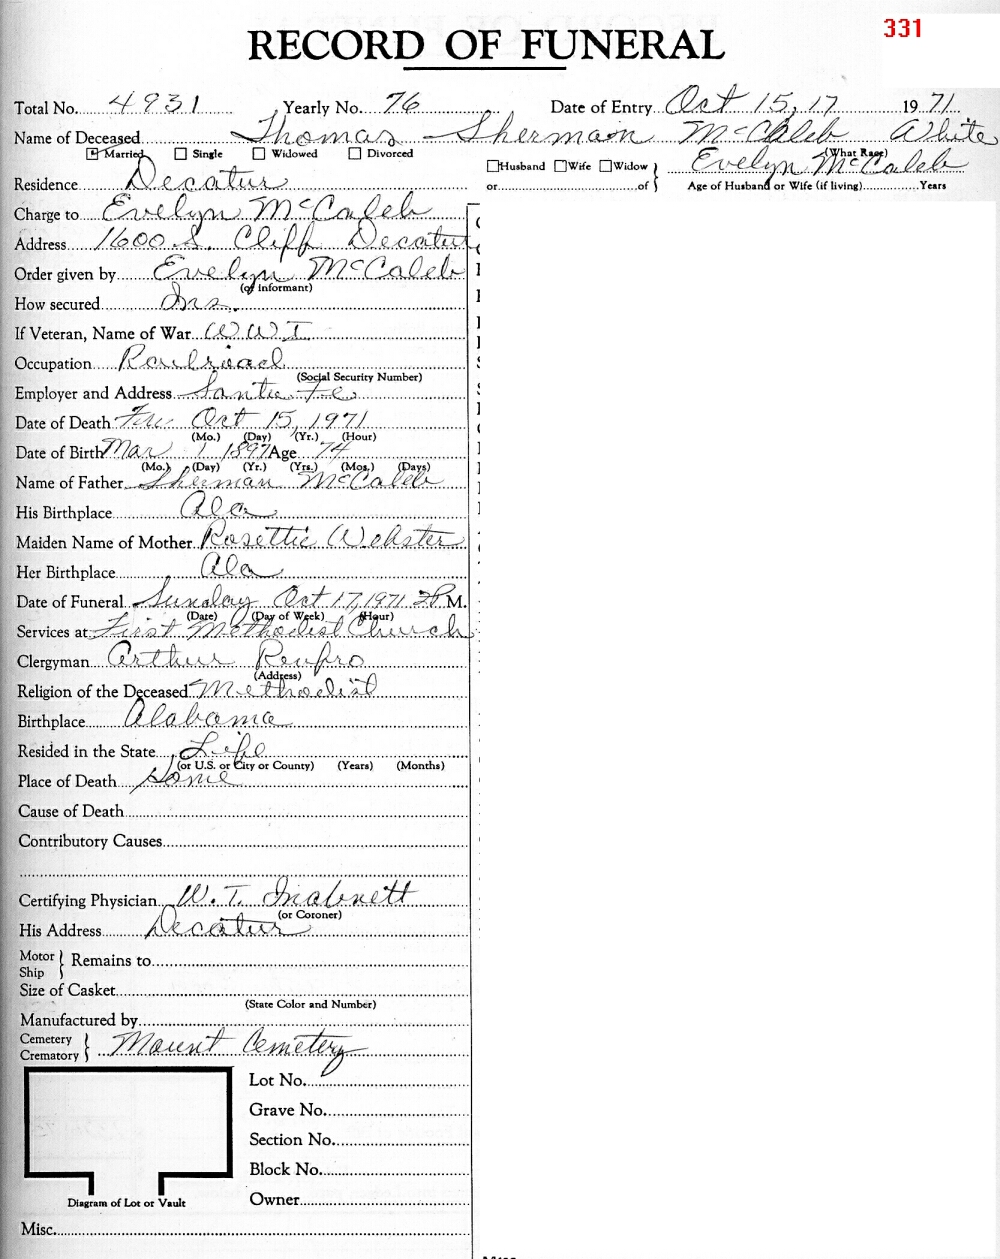 331
RECORD OF FUNERAL
Total No. 4931 Yearly No. 76 Date of Entry Oct 15, 17 1971
Name of Deceased Thomas Sherman McCaleb White
Married Single Widowed Divorced (What Race)
Husband Wife Widow Evelyn McCaleb
Residence Decatur or of Age of Husband or Wife (if living) Years
Charge to Evelyn McCaleb
Address 1600 S. Cliff Decatur
Order given by Evelyn McCaleb
(or informant)
How secured Ins.
If Veteran, Name of War WWI
Occupation Railroad
(Social Security Number)
Employer and Address Santa Fe
Date of Death Fri Oct 15, 1971
(Mo.) (Day) (Yr.) (Hour)
Date of Birth Mar 1 1897 Age 74
(Mo.) (Day) (Yr.) (Yrs.) (Mos.) (Days)
Name of Father Sherman McCaleb
His Birthplace Ala
Maiden Name of Mother Rosettie Webster
Her Birthplace Ala
Date of Funeral Sunday Oct 17, 1971 2P M.
(Date) (Day of Week) (Hour)
Services at First Methodist Church
Clergyman Arthur Renfro
(Address)
Religion of the Deceased Methodist
Birthplace Alabama
Resided in the State Life
(or U.S. or City or County) (Years) (Months)
Place of Death Home
Cause of Death
Contributory Causes
Certifying Physician W. T. Inabnett
(or Coroner)
His Address Decatur
Motor Ship Remains to
Size of Casket
(State Color and Number)
Manufactured by
Cemetery Crematory Mount Cemetery
Lot No.
Grave No.
Section No.
Block No.
Diagram of Lot or Vault
Owner
Misc.